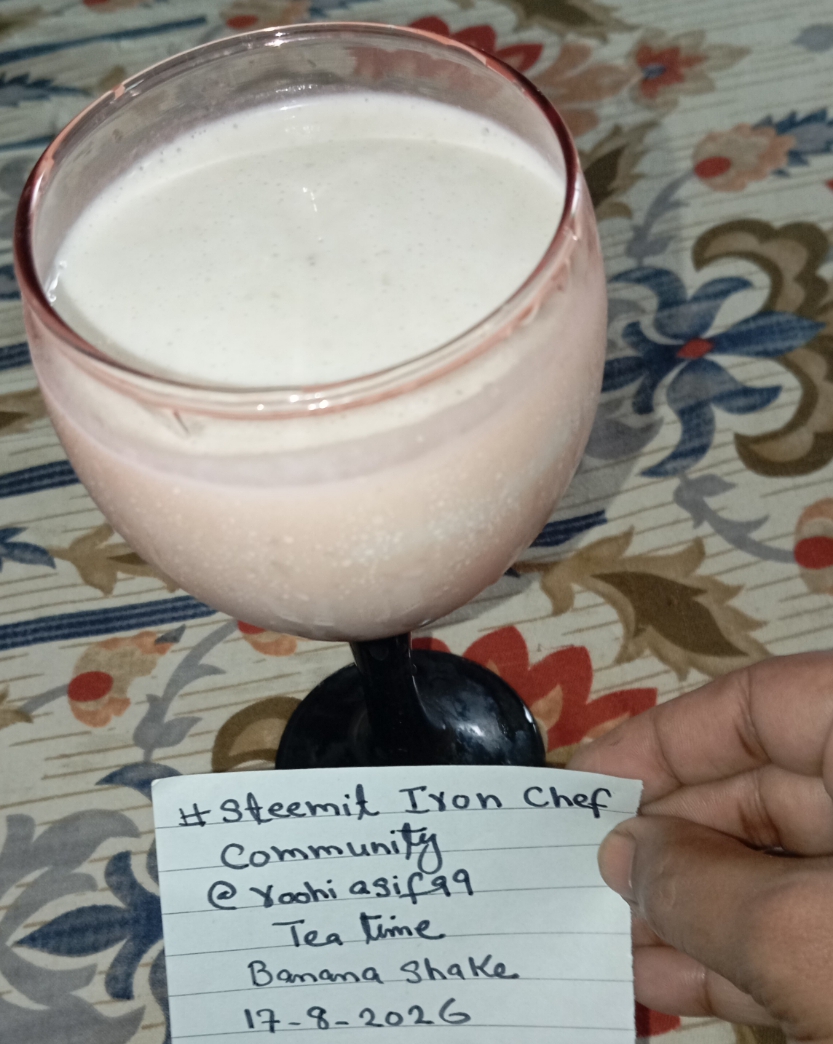 # Steemit Iron Chef
Community
@roohiasif99
Tea time
Banana Shake
17-8-2026